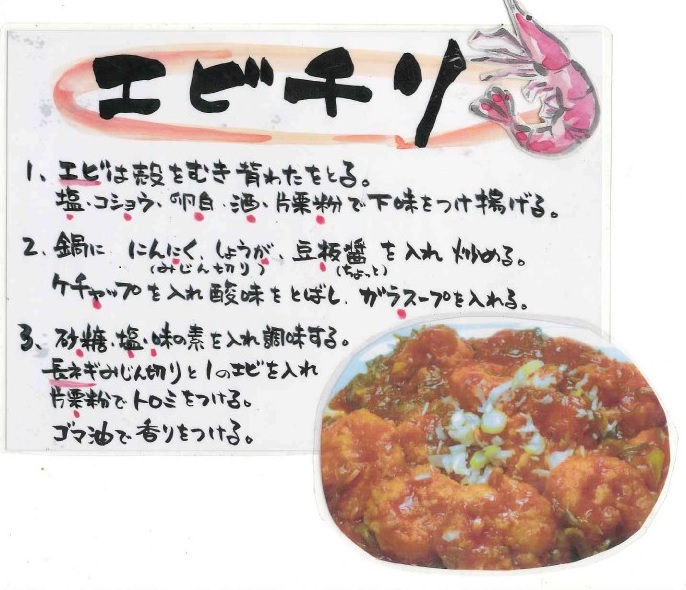 エビチリ
1、エビは殻をむき背わたをとる。
塩・コショウ、卵白、酒、片栗粉で下味をつけ揚げる。
2、鍋に にんにく、しょうが、豆板醤 を入れ 炒める。
(みじん切り) (ちょっと)
ケチャップを入れ酸味をとばし、ガラスープを入れる。
3、砂糖、塩、味の素を入れ調味する。
長ネギみじん切りと1のエビを入れ
片栗粉でトロミをつける。
ゴマ油で香りをつける。